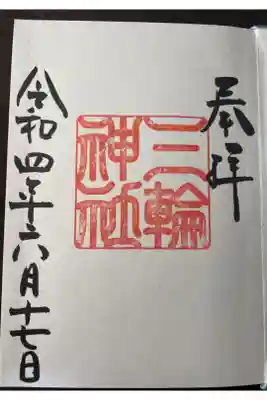 奉拝
三輪
神社
令和四年六月十七日